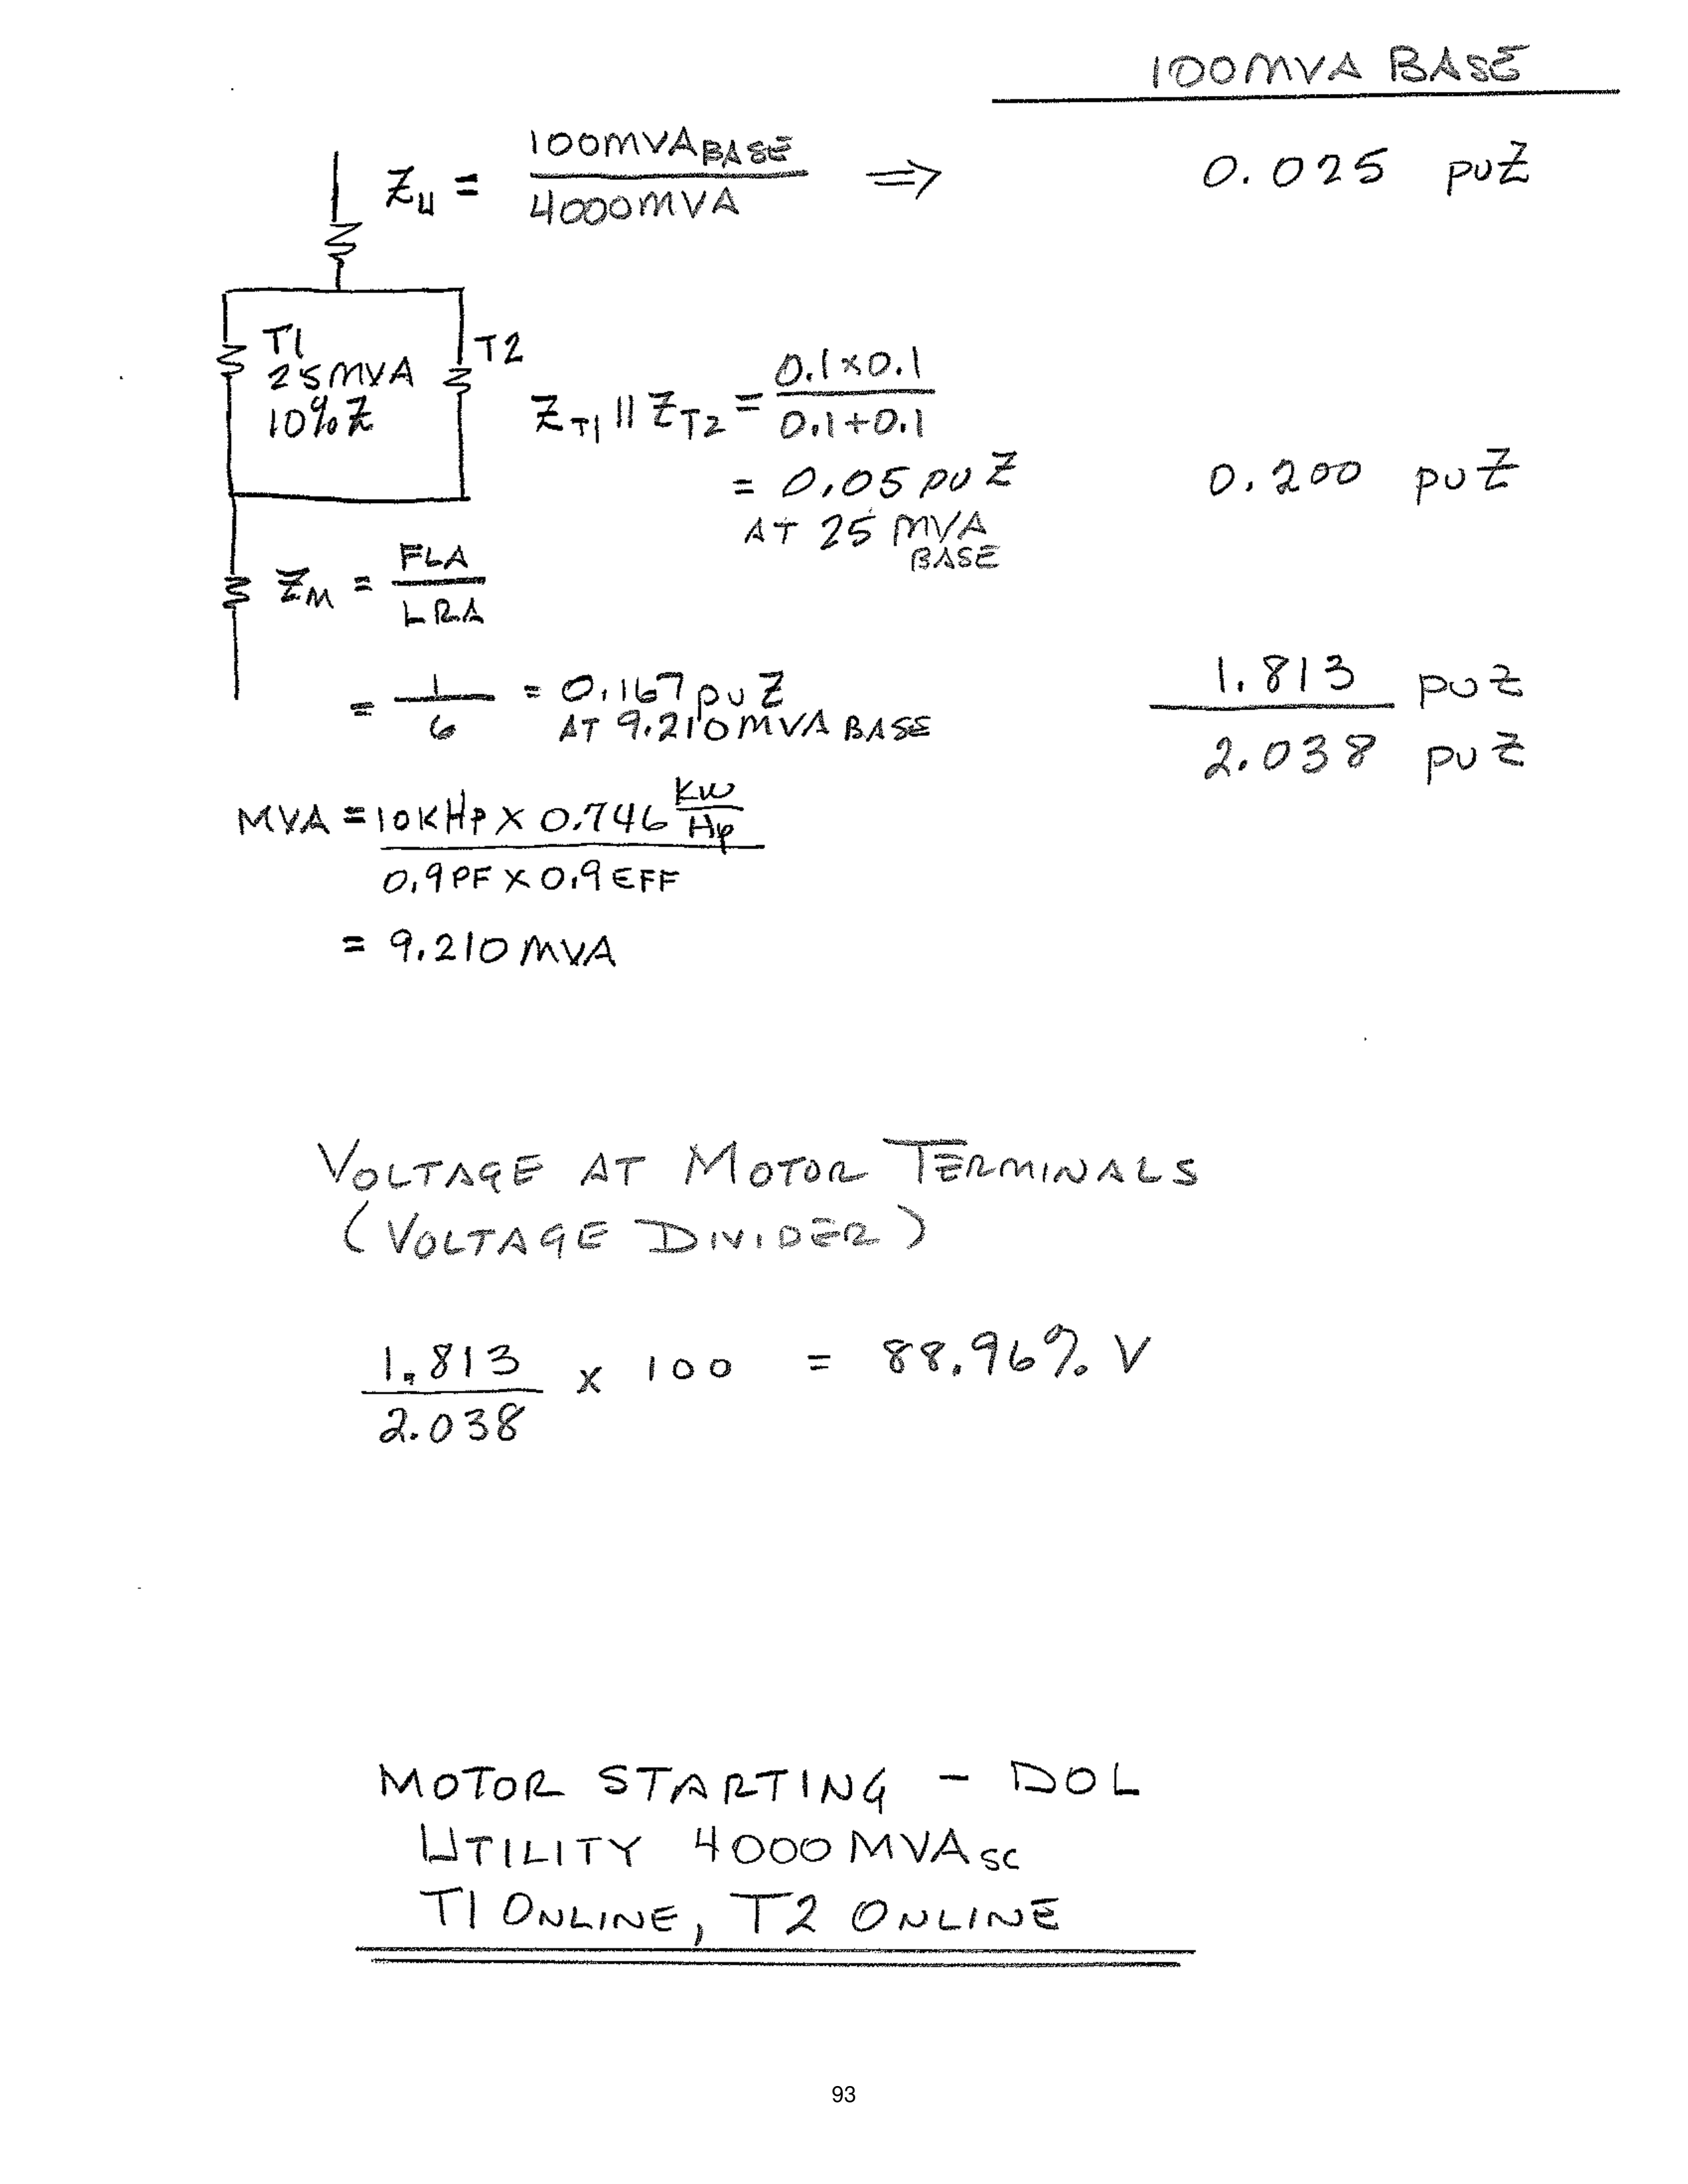 100MVA BASE
Z_U = 100MVA_BASE / 4000MVA ⇒ 0.025 puZ
T1
25MVA
10%Z
T2
Z_T1 || Z_T2 = 0.1×0.1 / 0.1+0.1
= 0.05 puZ 0.200 puZ
AT 25 MVA BASE
Z_M = FLA / LRA
= 1/6 = 0.167 puZ 1.813 puZ
AT 9.210MVA BASE
2.038 puZ
MVA = 10KHp × 0.746 KW/Hp / 0.9PF × 0.9EFF
= 9.210 MVA
VOLTAGE AT MOTOR TERMINALS
(VOLTAGE DIVIDER)
1.813 / 2.038 × 100 = 88.96% V
MOTOR STARTING - DOL
UTILITY 4000 MVA_SC
T1 ONLINE, T2 ONLINE
93